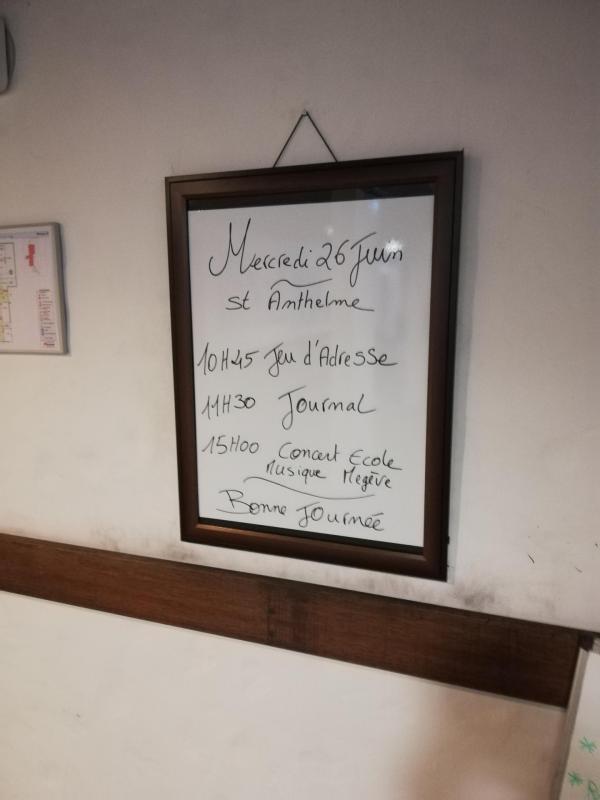 Mercredi 26 Juin
St Anthelme
10H45 Jeu d'Adresse
11H30 Journal
15H00 Concert Ecole
Musique Megève
Bonne Journée